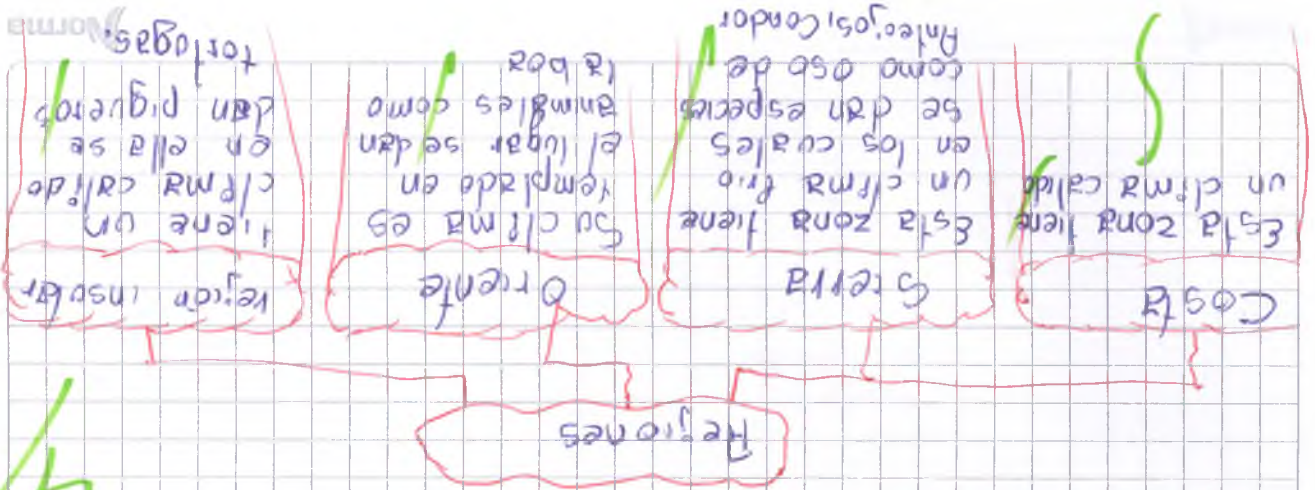 Rejiones
Costa
Esta zona tiene
un clima calido
Sierra
Esta zona tiene
un clima frio
en los cuales
se dan especies
como oso de
Anteojos, Condor
Oriente
Su clima es
templado en
el lugar se dan
animales como
la boa
rejión insular
tiene un
clima calido
en ella se
dan piqueros
tortugas.
Norma